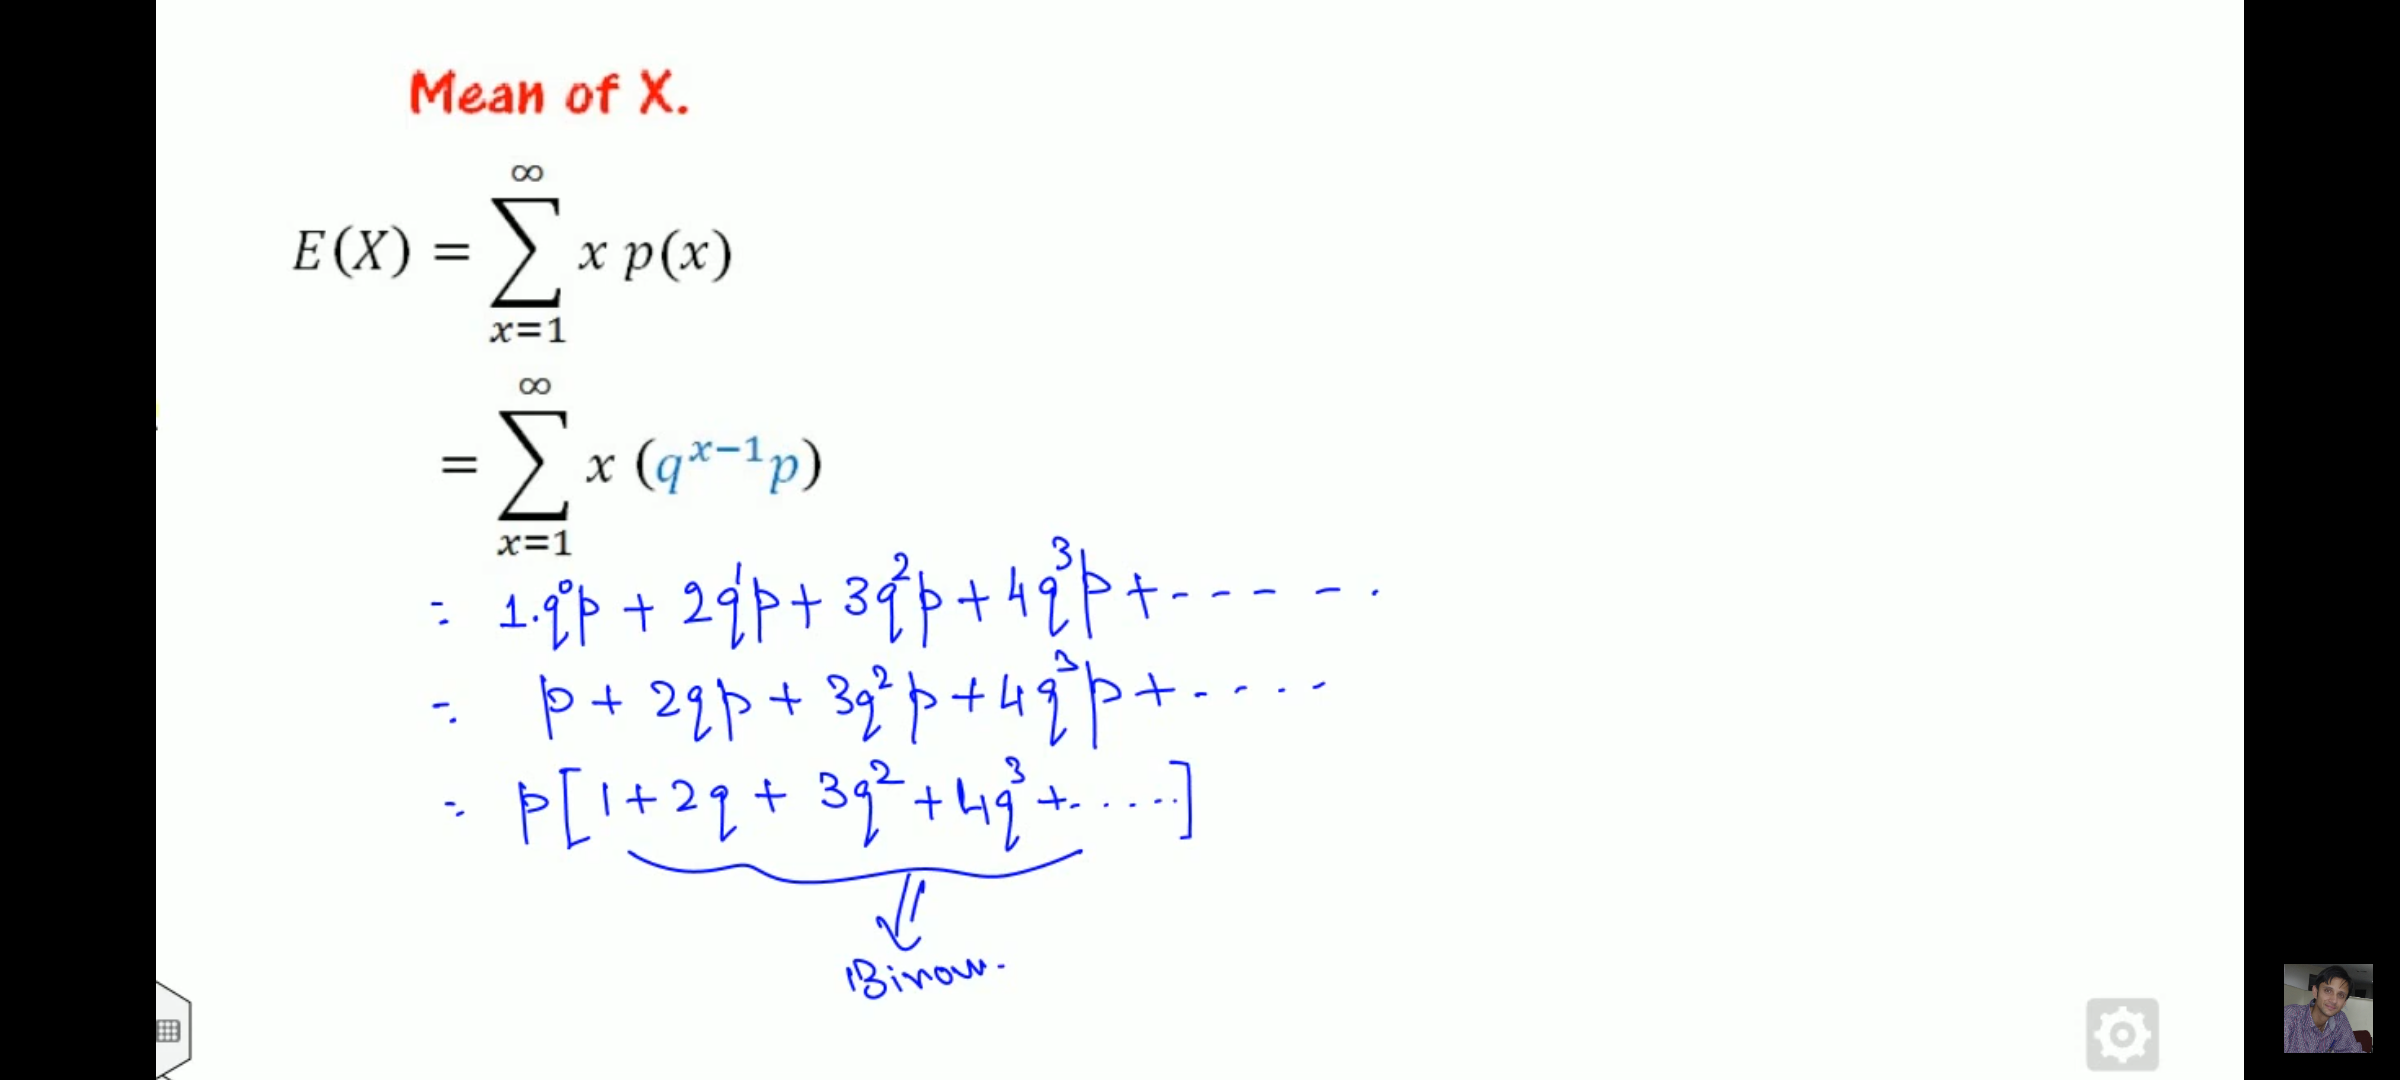 Mean of X.
E(X) = ∑_{x=1}^{∞} x p(x)
= ∑_{x=1}^{∞} x (q^{x−1}p)
= 1.q^0p + 2q^1p + 3q^2p + 4q^3p + - - - - - .
= p + 2qp + 3q^2p + 4q^3p + - - - -
= p[1 + 2q + 3q^2 + 4q^3 + .....]